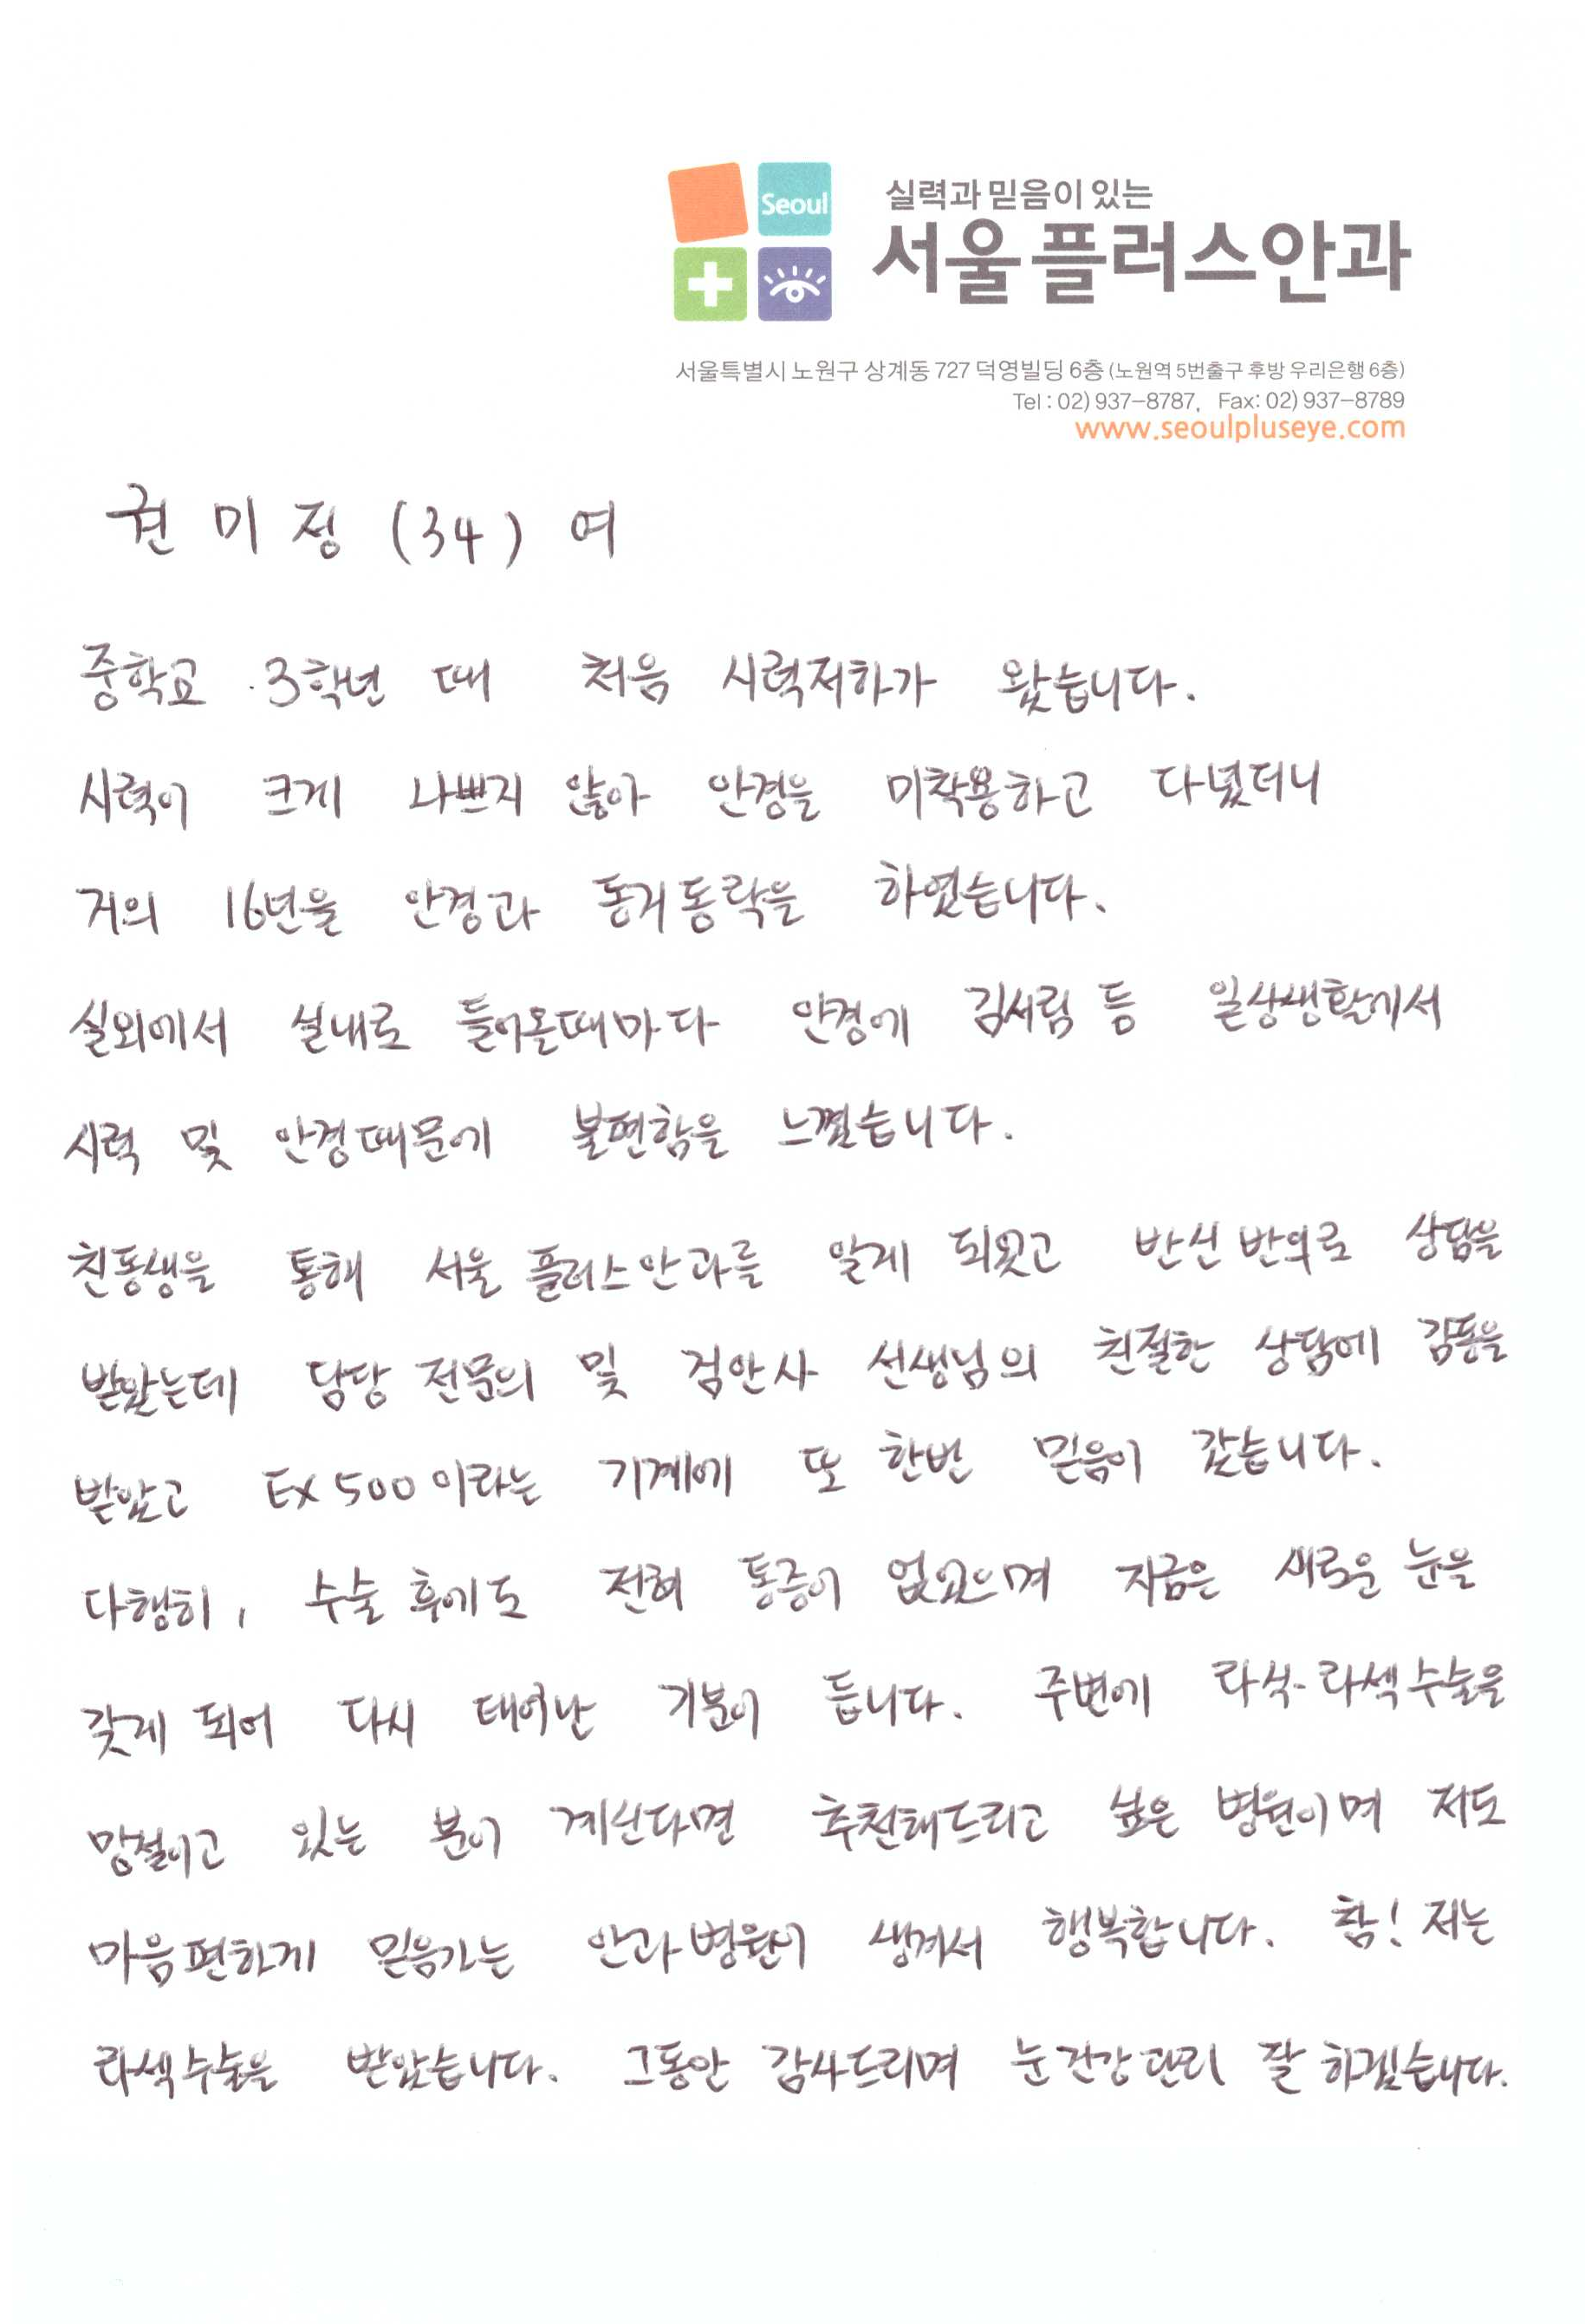 Seoul
실력과 믿음이 있는
서울플러스안과
서울특별시 노원구 상계동 727 덕영빌딩 6층 (노원역 5번출구 후방 우리은행 6층)
Tel : 02) 937-8787, Fax: 02) 937-8789
www.seoulpluseye.com
권 미 정 (34) 여
중학교 3학년 때 처음 시력저하가 왔습니다.
시력이 크게 나쁘지 않아 안경을 미착용하고 다녔더니
거의 16년을 안경과 동거동락을 하였습니다.
실외에서 실내로 들어올때마다 안경에 김서림 등 일상생활에서
시력 및 안경때문에 불편함을 느꼈습니다.
친동생을 통해 서울플러스안과를 알게 되었고 반신반의로 상담을
받았는데 담당 전문의 및 검안사 선생님의 친절한 상담에 감동을
받았고 EX500이라는 기계에 또 한번 믿음이 갔습니다.
다행히, 수술 후에도 전혀 통증이 없었으며 지금은 새로운 눈을
갖게 되어 다시 태어난 기분이 듭니다. 주변에 라식·라섹수술을
망설이고 있는 분이 계신다면 추천해드리고 싶은 병원이며 저도
마음편하게 믿음가는 안과병원이 생겨서 행복합니다. 참! 저는
라섹수술을 받았습니다. 그동안 감사드리며 눈건강관리 잘 하겠습니다.